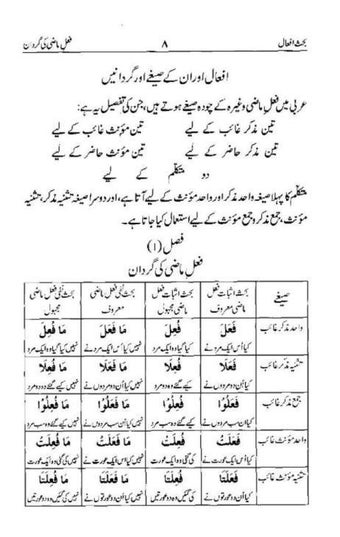 بحث افعال ۸ فعل ماضی کی گردان
افعال اور ان کے صیغے اور گردانیں
عربی میں فعل ماضی وغیرہ کے چودہ صیغے ہوتے ہیں، جن کی تفصیل یہ ہے:
تین مذکر غائب کے لیے تین مؤنث غائب کے لیے
تین مذکر حاضر کے لیے تین مؤنث حاضر کے لیے
دو متکلم کے لیے
متکلم کا پہلا صیغہ واحد مذکر اور واحد مؤنث کے لیے آتا ہے، اور دوسرا صیغہ تثنیہ مذکر، تثنیہ
مؤنث، جمع مذکر و جمع مؤنث کے لیے استعمال کیا جاتا ہے۔
فصل (۱)
فعل ماضی کی گردان
صیغے بحث اثبات فعل بحث اثبات فعل بحث نفی فعل ماضی بحث نفی فعل ماضی
ماضی معروف ماضی مجہول معروف مجہول
واحد مذکر غائب فَعَلَ فُعِلَ مَا فَعَلَ مَا فُعِلَ
کیا اُس ایک مرد نے کیا گیا وہ ایک مرد نہیں کیا اُس ایک مرد نے نہیں کیا گیا وہ ایک مرد
تثنیہ مذکر غائب فَعَلَا فُعِلَا مَا فَعَلَا مَا فُعِلَا
کیا اُن دو مردوں نے کیے گئے وہ دو مرد نہیں کیا اُن دو مردوں نے نہیں کیے گئے وہ دو مرد
جمع مذکر غائب فَعَلُوْا فُعِلُوْا مَا فَعَلُوْا مَا فُعِلُوْا
کیا اُن سب مردوں نے کیے گئے وہ سب مرد نہیں کیا اُن سب مردوں نے نہیں کیے گئے وہ سب مرد
واحد مؤنث غائب فَعَلَتْ فُعِلَتْ مَا فَعَلَتْ مَا فُعِلَتْ
کیا اُس ایک عورت نے کی گئی وہ ایک عورت نہیں کیا اُس ایک عورت نے نہیں کی گئی وہ ایک عورت
تثنیہ مؤنث غائب فَعَلَتَا فُعِلَتَا مَا فَعَلَتَا مَا فُعِلَتَا
کیا اُن دو عورتوں نے کی گئیں وہ دو عورتیں نہیں کیا اُن دو عورتوں نے نہیں کی گئیں وہ دو عورتیں